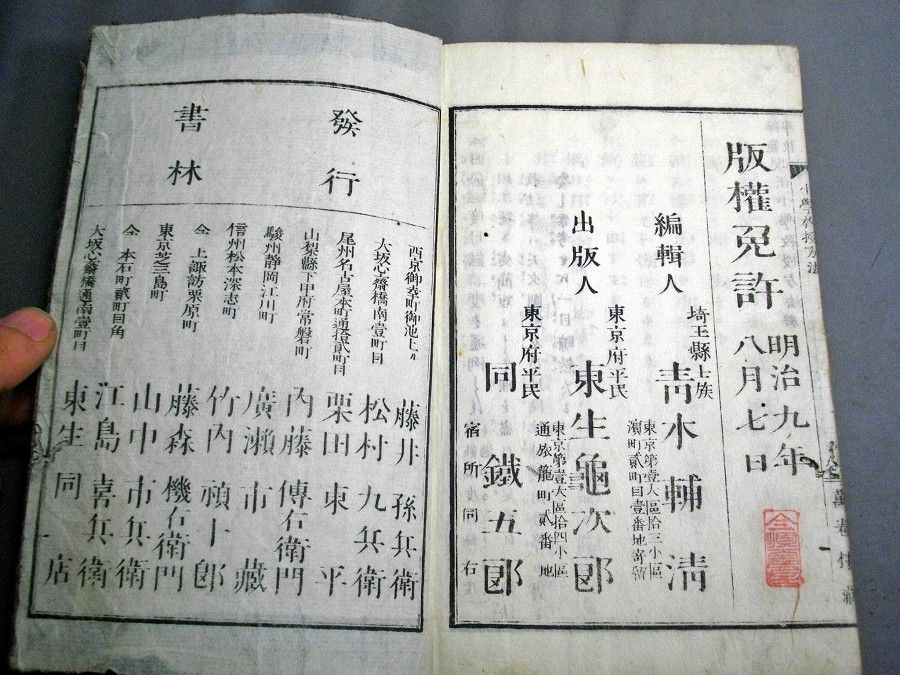 版權免許 明治九年
八月七日
編輯人 埼玉縣士族 青木輔清
東京第壹大區拾三小區
濱町貳町目壹番地寄留
出版人 東京府平民 東生龜次郎
東京第壹大區拾四小區
通旅籠町貳番地
東京府平民 同 鐵五郎
宿所同右
發行
書林
西京御幸町御池上ル 藤井孫兵衛
大坂心齋橋南壹町目 松村九兵衛
尾州名古屋本町通拾貳町目 栗田東平
山梨縣下甲府常磐町 内藤傳右衛門
駿州靜岡江川町 廣瀬市藏
信州松本深志町 竹内禎十郎
仝 上諏訪栗原町 藤森機右衛門
東京芝三島町 山中市兵衛
仝 本石町貳町目角 江島喜兵衛
大坂心齋橋通南壹町目 東生同店